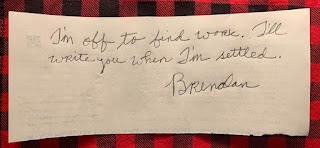 I'm off to find work. I'll
write you when I'm settled.
Brendan